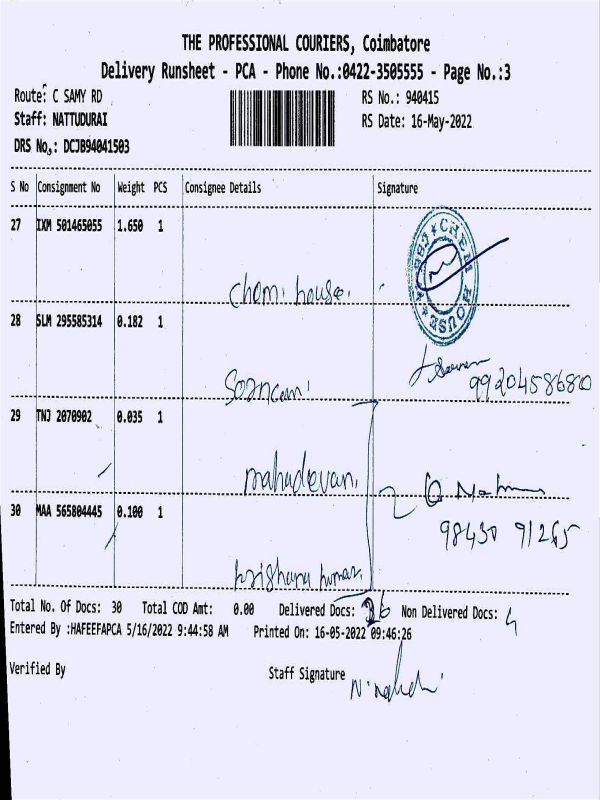 THE PROFESSIONAL COURIERS, Coimbatore
Delivery Runsheet - PCA - Phone No.:0422-3505555 - Page No.:3
Route: C SAMY RD RS No.: 940415
Staff: NATTUDURAI RS Date: 16-May-2022
DRS No,: DCJB94041503
S No Consignment No Weight PCS Consignee Details Signature
27 IXM 501465055 1.650 1
CHEM HOUSE
chem. house.
28 SLM 295585314 0.182 1
9920458680
29 TNJ 2070902 0.035 1
mahadevan.
30 MAA 565804445 0.100 1
98430 91265
krishana kumar.
Total No. Of Docs: 30 Total COD Amt: 0.00 Delivered Docs: 26 Non Delivered Docs: 4
Entered By :HAFEEFAPCA 5/16/2022 9:44:58 AM Printed On: 16-05-2022 09:46:26
Verified By Staff Signature